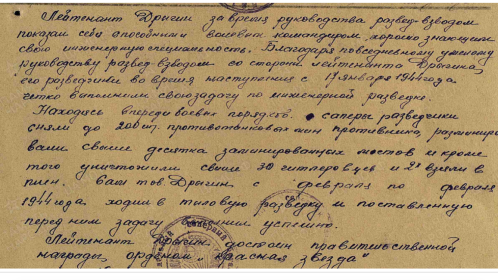 Лейтенант Дрыгин за время руководства развед-взводом
показал себя способным волевым командиром, хорошо знающим
свою инженерную специальность. Благодаря повседневному умелому
руководству развед-взводом со стороны лейтенанта Дрыгина,
его разведчики во время наступления с 17 января 1944 года
четко выполнили свою задачу по инженерной разведке.
Находясь впереди боевых порядков саперы разведчики
сняли до 200 шт. противотанковых мин противника, разминиро-
вали свыше десятка заминированных мостов и кроме
того уничтожили свыше 30 гитлеровцев и 2х взяли в
плен. Сам тов. Дрыгин с февраля по февраля
1944 года ходил в тыловую разведку и поставленную
перед ним задачу выполнил успешно.
Лейтенант Дрыгин достоин правительственной
награды орденом „Красная звезда"